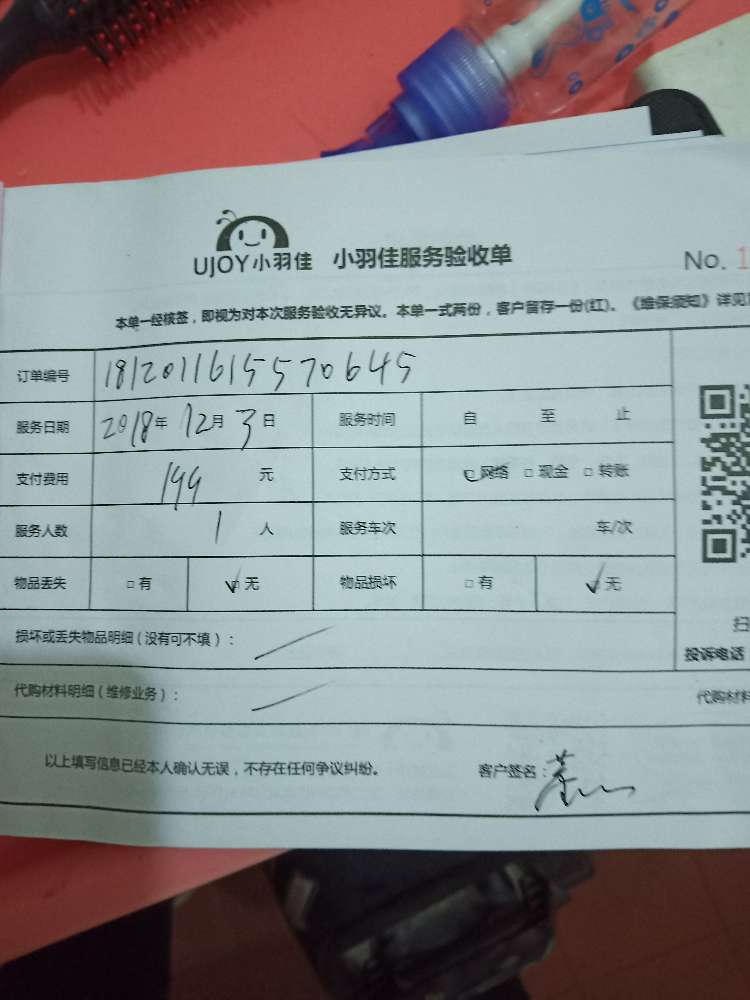 UJOY小羽佳 小羽佳服务验收单 No. 1
本单一经核签，即视为对本次服务验收无异议。本单一式两份，客户留存一份(红)。《维保须知》详见
订单编号 181201161557 0645
服务日期 2018年 12月 3日 服务时间 自 至 止
支付费用 199 元 支付方式 网络 现金 转账
服务人数 1 人 服务车次 车/次
物品丢失 有 ✓无 物品损坏 有 ✓无
扫
损坏或丢失物品明细（没有可不填）：
投诉电话
代购材料明细（维修业务）：
代购材料
以上填写信息已经本人确认无误，不存在任何争议纠纷。 客户签名：